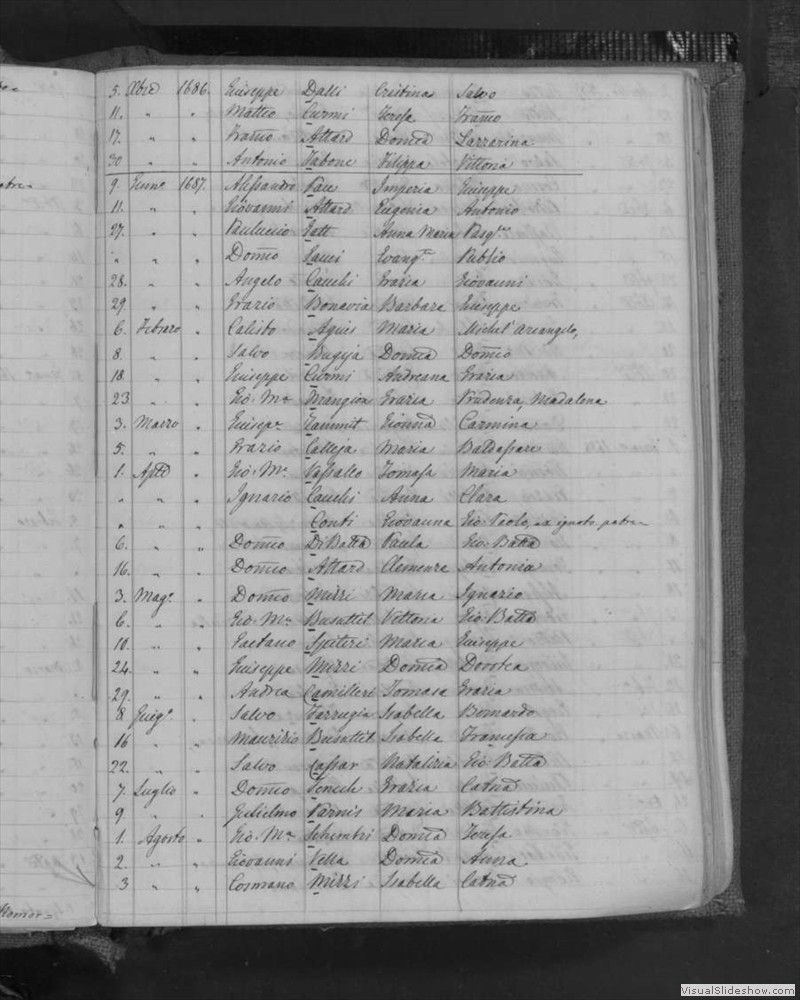 5. Xbre 1686. Giuseppe Dalli Cristina Salvo
11. " " Matteo Curmi Teresa
17. " " Attard Domca Lazzarina
30 " " Antonio Zabone Filippa Vittoria
9. Genn. 1687. Alessandro Pace Imperia Giuseppe
11. " " Giovanni Attard Eugenia Antonio
27. " " Pauluccio Anna Maria
" " " Domco Evangta Publio
28. " " Angelo Cauchi Grazia Giovanni
29 " " Grazio Bonavia Barbara Giuseppe
6. Febraro " Calisto Agius Maria Michel' Arcangelo,
8. " " Salvo Bugeja Domca Domco
18. " " Giuseppe Curmi Andreana Grazia
23 " " Gio: Ma Mangion Grazia Prudenza, Madalena
3. Marzo " Giusepe Zammit Gionna Carmina
5. " " Grazio Calleja Maria Baldassare
1. Aple " Gio: Ma Vassallo Tomasa Maria
" " " Ignazio Cauchi Anna Clara
" " " Conti Giovanna Gio: Paolo, ex ignoto patre
6. " " Domco Di Batta Paula Gio: Batta
16. " " Domco Attard Clemenza Antonia
3. Mago " Domco Mizzi Maria Ignazio
6. " " Gio: Ma Busuttil Vittoria Gio: Batta
10. " " Gaetano Spiteri Maria Giuseppe
24. " " Giuseppe Mizzi Domca Dorotea
29. " " Andrea Camilleri Tomasa Grazia
8 Giugo " Salvo Farrugia Isabella Bernardo
16 " " Maurizio Busuttil Isabella
22. " " Salvo Cassar Natalizia Gio: Batta
7. Luglio " Domco Tonch Grazia Catna
9. " " Gulielmo Parnis Maria Battistina
1. Agosto " Gio: Ma Schembri Domca Teresa
2. " " Giovanni Vella Domca Anna
3 " " Cosmano Mizzi Isabella Catna
VisualSlideshow.com